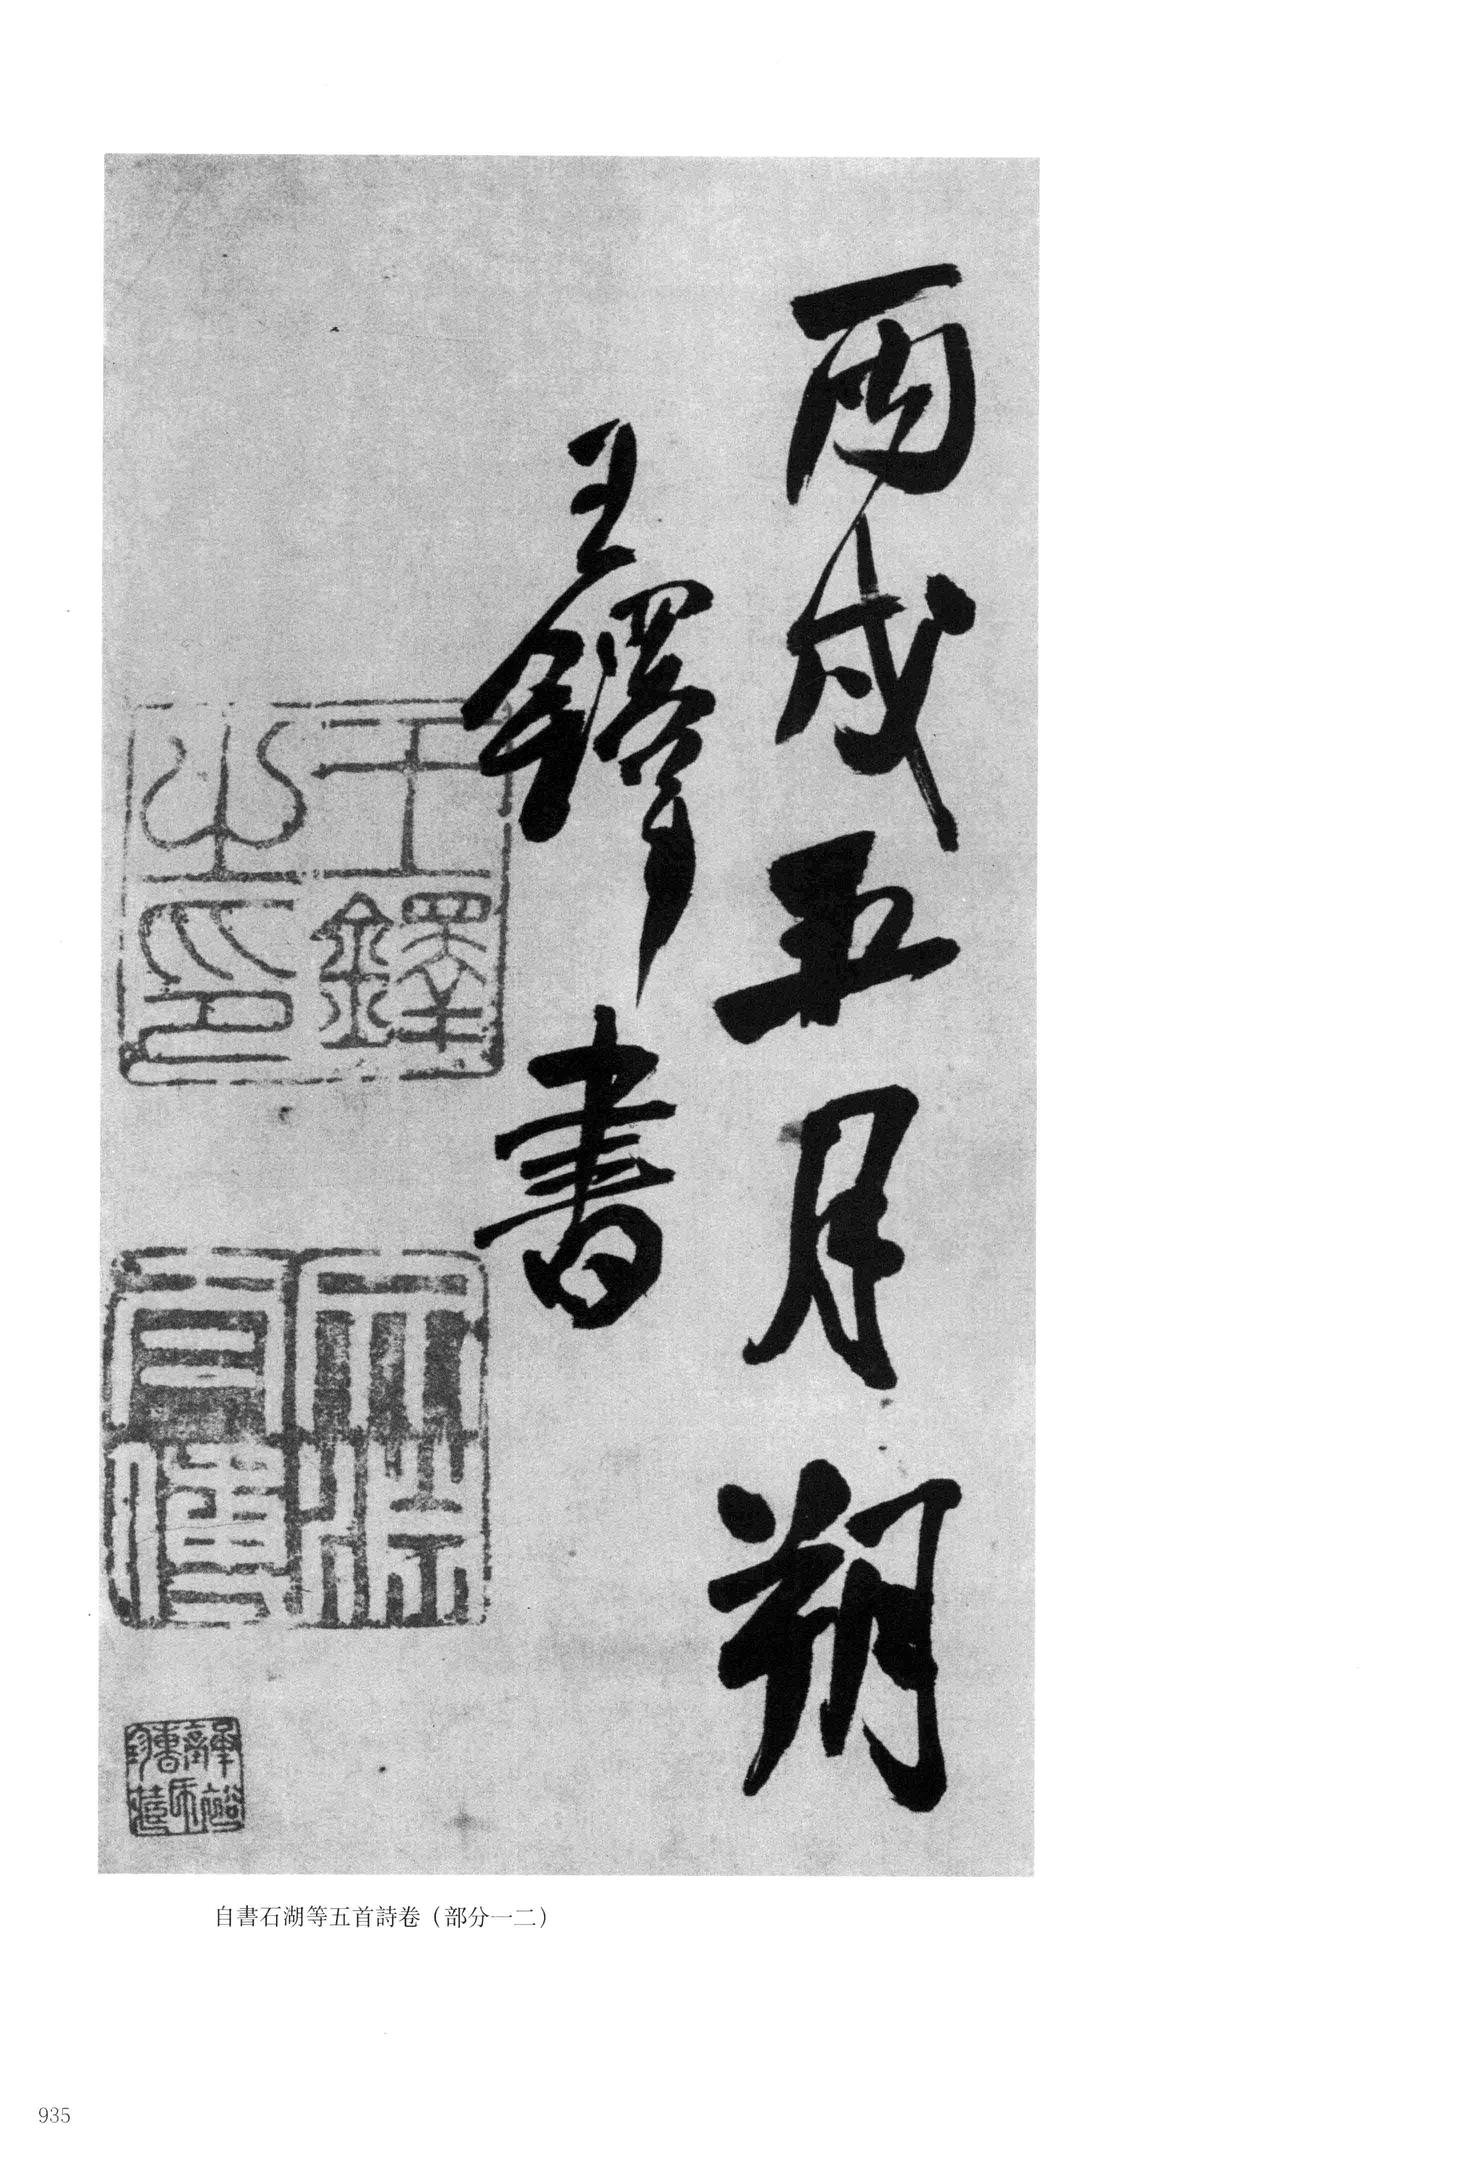 丙戌五月朔
王鐸書
王鐸之印
大宗白傳
自書石湖等五首詩卷（部分一二）
935